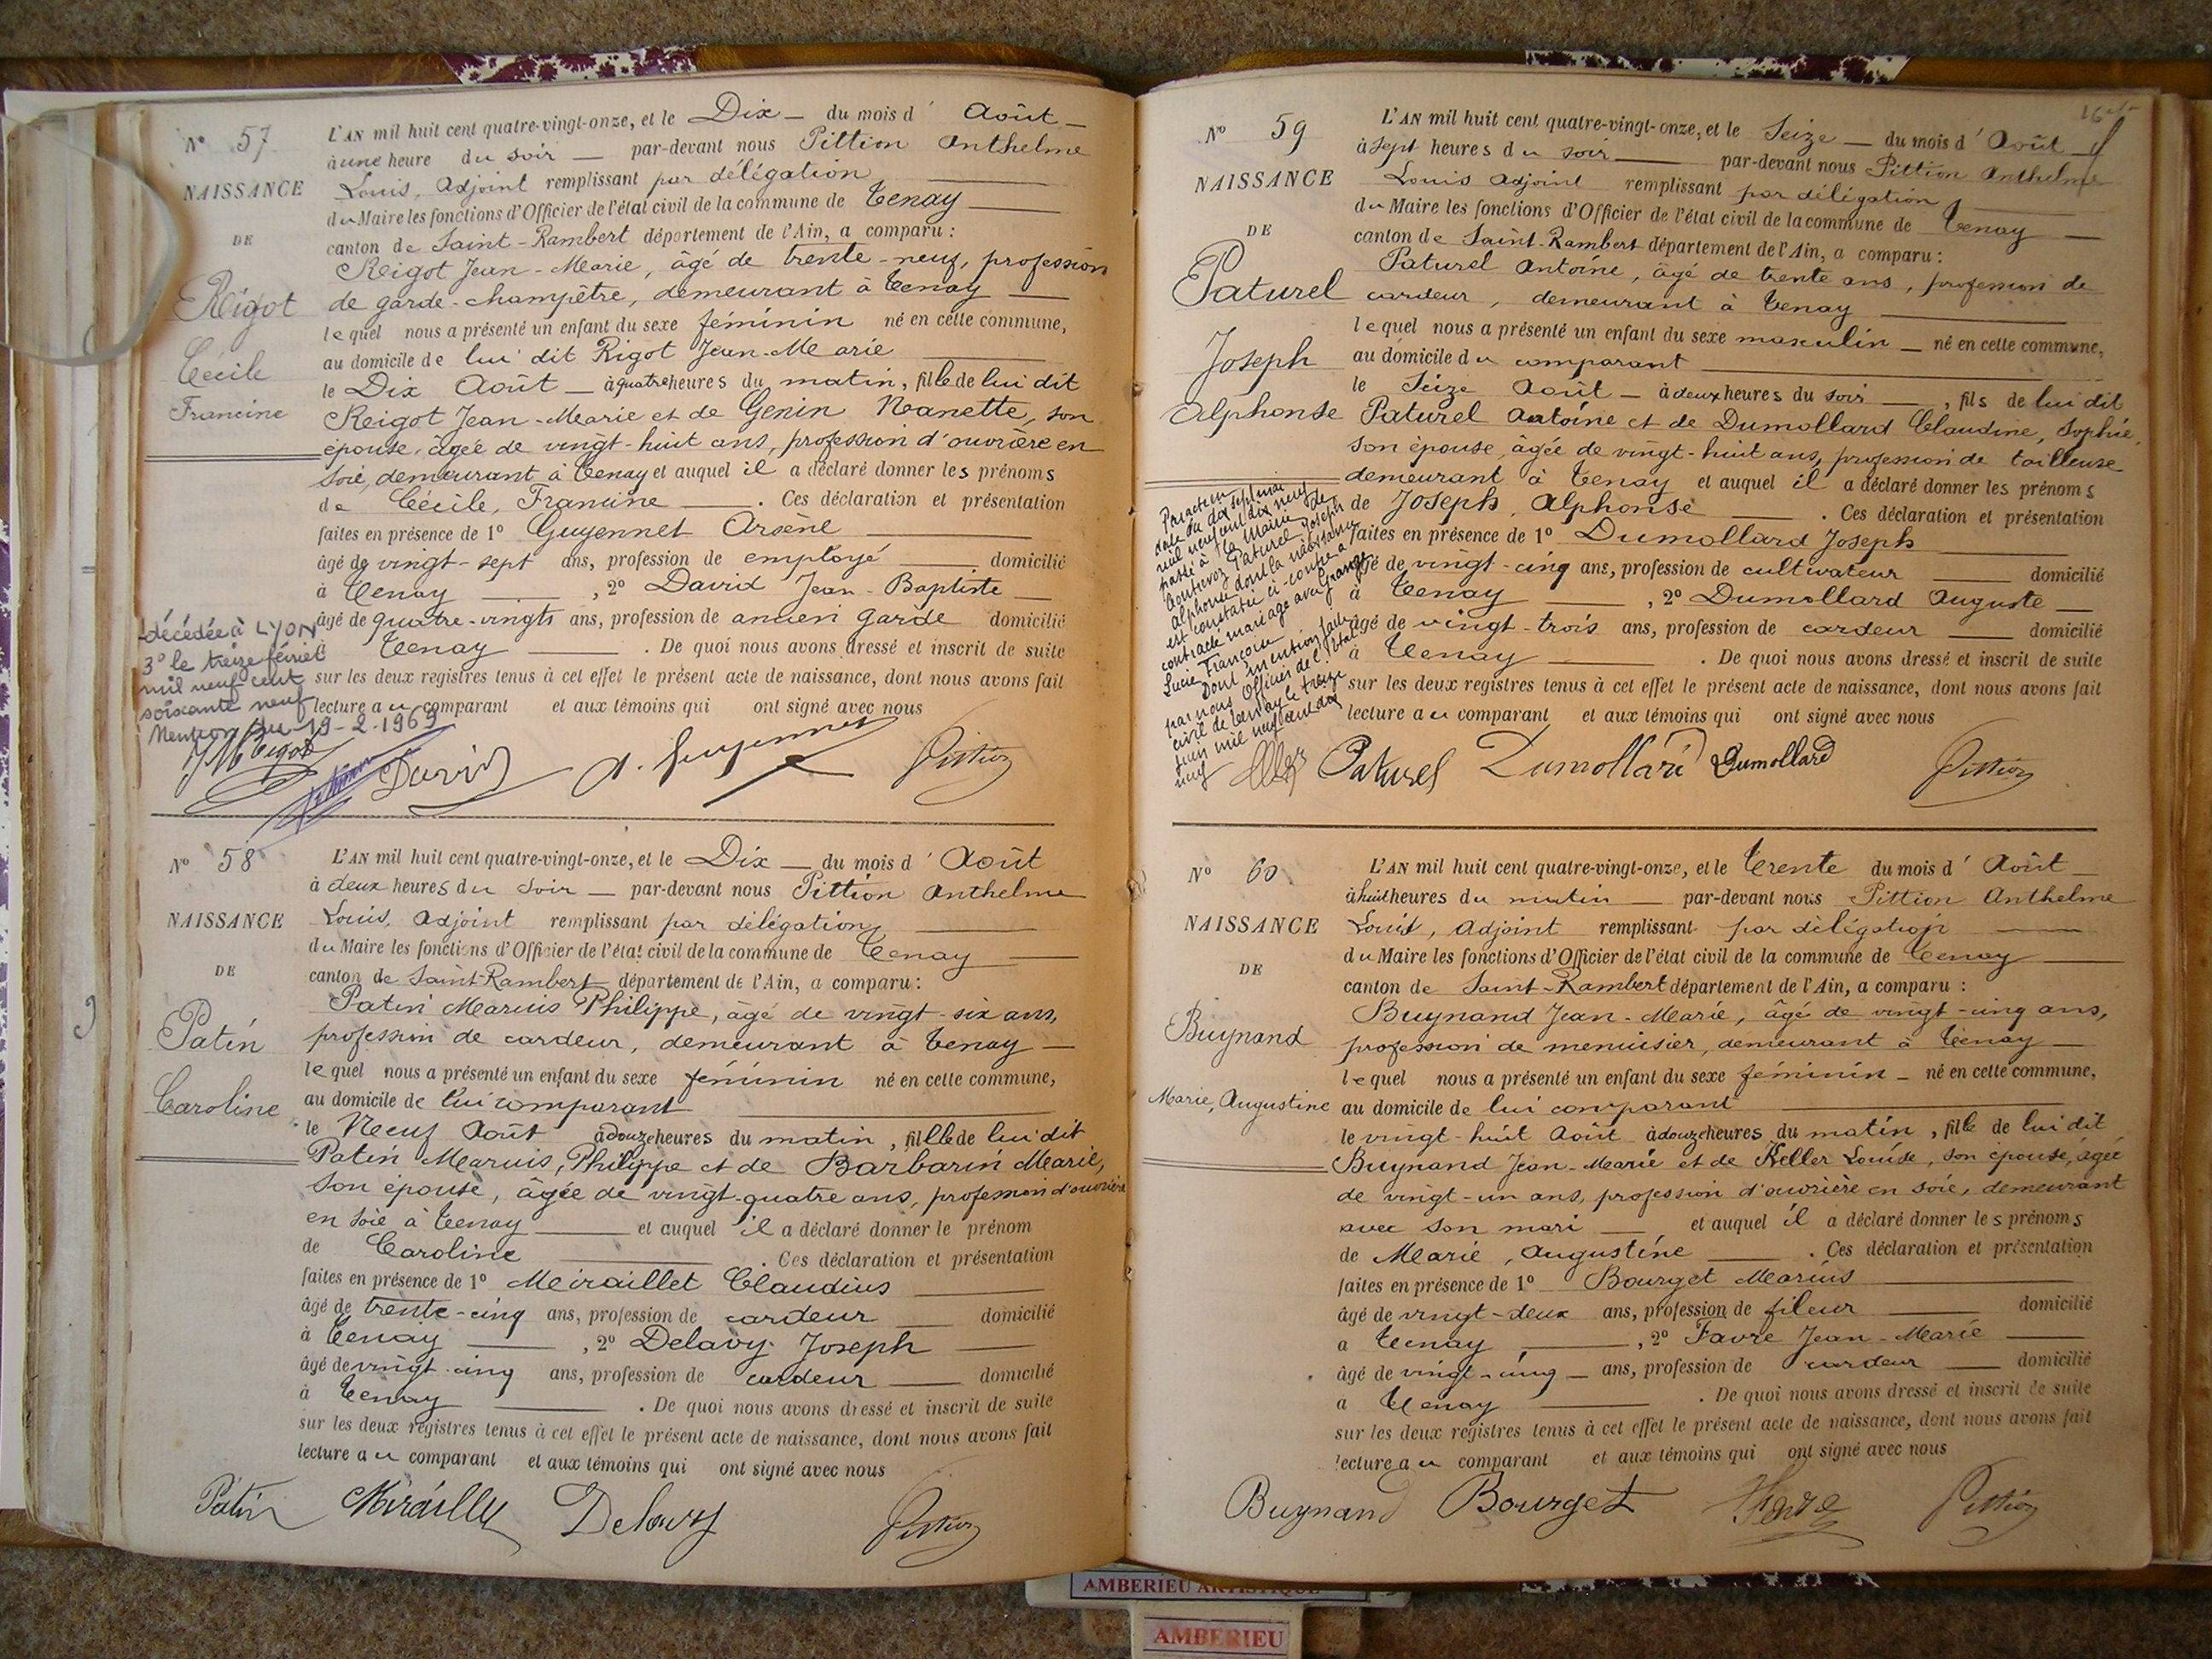 N° 57
NAISSANCE
DE
Rigot
Cécile
Francine
L'AN mil huit cent quatre-vingt-onze, et le Dix — du mois d' Août —
à une heure du soir — par-devant nous Pittion Anthelme
Louis, Adjoint remplissant par délégation
du Maire les fonctions d'Officier de l'état civil de la commune de Tenay
canton de Saint-Rambert département de l'Ain, a comparu :
Rigot Jean-Marie, âgé de trente-neuf, profession
de garde-champêtre, demeurant à Tenay
lequel nous a présenté un enfant du sexe féminin né en cette commune,
au domicile de lui dit Rigot Jean-Marie
le Dix Août — à quatre heures du matin, fille de lui dit
Rigot Jean-Marie et de Genin Nanette, son
épouse, âgée de vingt-huit ans, profession d'ouvrière en
soie, demeurant à Tenay et auquel il a déclaré donner les prénoms
de Cécile, Francine . Ces déclaration et présentation
faites en présence de 1° Guyennet Arsène
âgé de vingt-sept ans, profession de employé domicilié
à Tenay , 2° David Jean-Baptiste
âgé de quatre-vingts ans, profession de ancien garde domicilié
Tenay . De quoi nous avons dressé et inscrit de suite
sur les deux registres tenus à cet effet le présent acte de naissance, dont nous avons fait
lecture au comparant et aux témoins qui ont signé avec nous
décédée à LYON
3° le treize février
mil neuf cent
soixante neuf
Mention du 19-2-1969
JM Rigot David A. Guyennet Pittion
N° 58
NAISSANCE
DE
Patin
Caroline
L'AN mil huit cent quatre-vingt-onze, et le Dix — du mois d' Août
à deux heures du soir — par-devant nous Pittion Anthelme
Louis, Adjoint remplissant par délégation
du Maire les fonctions d'Officier de l'état civil de la commune de Tenay
canton de Saint-Rambert département de l'Ain, a comparu :
Patin Marius Philippe, âgé de vingt-six ans,
profession de cardeur, demeurant à Tenay —
lequel nous a présenté un enfant du sexe féminin né en cette commune,
au domicile de lui comparant
le Neuf Août à douze heures du matin, fille de lui dit
Patin Marius, Philippe et de Barbarin Marie,
son épouse, âgée de vingt-quatre ans, profession d'ouvrière
en soie à Tenay et auquel il a déclaré donner le prénom
de Caroline . Ces déclaration et présentation
faites en présence de 1° Miraillet Claudius
âgé de trente-cinq ans, profession de cardeur domicilié
à Tenay , 2° Delavy Joseph
âgé de vingt-cinq ans, profession de cardeur domicilié
à Tenay . De quoi nous avons dressé et inscrit de suite
sur les deux registres tenus à cet effet le présent acte de naissance, dont nous avons fait
lecture au comparant et aux témoins qui ont signé avec nous
Patin Miraillet Delavy Pittion
N° 59
NAISSANCE
DE
Paturel
Joseph
Alphonse
L'AN mil huit cent quatre-vingt-onze, et le Seize — du mois d' Août
à sept heures du soir par-devant nous Pittion Anthelme
Louis Adjoint remplissant par délégation
du Maire les fonctions d'Officier de l'état civil de la commune de Tenay
canton de Saint-Rambert département de l'Ain, a comparu :
Paturel Antoine, âgé de trente ans, profession de
cardeur, demeurant à Tenay
lequel nous a présenté un enfant du sexe masculin — né en cette commune,
au domicile du comparant
le Seize Août — à deux heures du soir — , fils de lui dit
Paturel Antoine et de Dumollard Claudine, Sophie,
son épouse, âgée de vingt-huit ans, profession de tailleuse
demeurant à Tenay et auquel il a déclaré donner les prénoms
de Joseph, Alphonse . Ces déclaration et présentation
faites en présence de 1° Dumollard Joseph
âgé de vingt-cinq ans, profession de cultivateur domicilié
à Tenay , 2° Dumollard Auguste —
âgé de vingt-trois ans, profession de cardeur domicilié
à Tenay . De quoi nous avons dressé et inscrit de suite
sur les deux registres tenus à cet effet le présent acte de naissance, dont nous avons fait
lecture au comparant et aux témoins qui ont signé avec nous
Par acte en
date du dix sept mai
mil neuf cent dix neuf
passé à la Mairie de
Paturel Joseph
Alphonse dont la naissance
est constatée ci-contre a
contracté mariage avec Grange
Lucie Françoise
Dont mention faite
par nous Officier de l'Etat
civil de Tenay le treize
juin mil neuf cent dix
neuf
Paturel Dumollard Dumollard Pittion
N° 60
NAISSANCE
DE
Buynand
Marie, Augustine
L'AN mil huit cent quatre-vingt-onze, et le Trente du mois d' Août —
à huit heures du matin — par-devant nous Pittion Anthelme
Louis, Adjoint remplissant par délégation
du Maire les fonctions d'Officier de l'état civil de la commune de Tenay
canton de Saint-Rambert département de l'Ain, a comparu :
Buynand Jean-Marie, âgé de vingt-cinq ans,
profession de menuisier, demeurant à Tenay —
lequel nous a présenté un enfant du sexe féminin — né en cette commune,
au domicile de lui comparant
le vingt-huit Août à douze heures du matin, fille de lui dit
Buynand Jean-Marie et de Keller Louise, son épouse, âgée
de vingt-un ans, profession d'ouvrière en soie, demeurant
avec son mari — et auquel il a déclaré donner les prénoms
de Marie, Augustine . Ces déclaration et présentation
faites en présence de 1° Bourget Marius
âgé de vingt-deux ans, profession de fileur domicilié
à Tenay , 2° Favre Jean-Marie
âgé de vingt-cinq — ans, profession de cardeur domicilié
à Tenay . De quoi nous avons dressé et inscrit de suite
sur les deux registres tenus à cet effet le présent acte de naissance, dont nous avons fait
lecture au comparant et aux témoins qui ont signé avec nous
Buynand Bourget Favre Pittion
AMBERIEU ARTISTIQUE
AMBERIEU